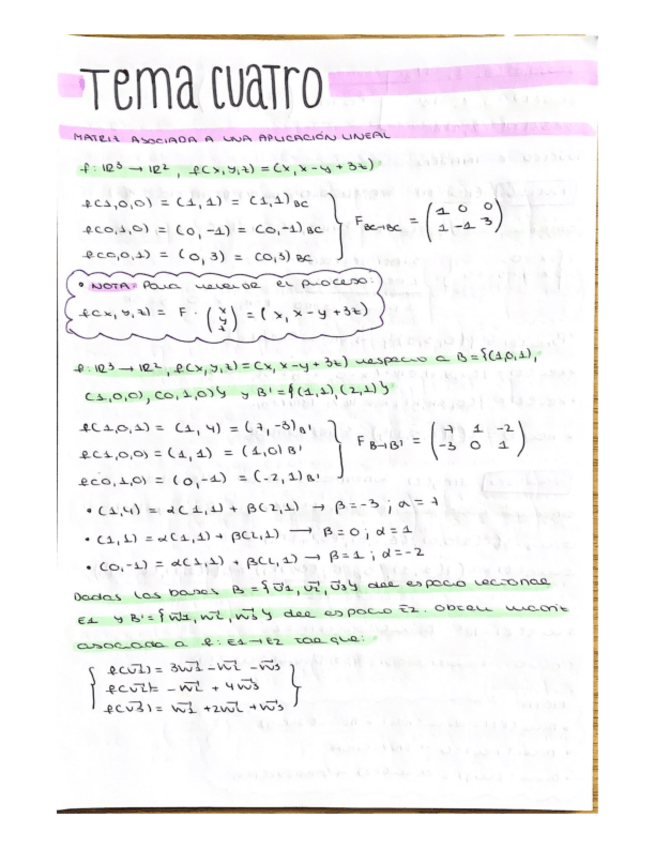 Tema CUATRO
MATRIZ ASOCIADA A UNA APLICACIÓN LINEAL
f: IR3 → IR2, f(x,y,z) = (x, x-y+3z)
f(1,0,0) = (1,1) = (1,1)BC
f(0,1,0) = (0,-1) = (0,-1)BC
f(0,0,1) = (0,3) = (0,3)BC
F BC→BC = (1 0 0
1 -1 3)
• NOTA: Para revertir el proceso:
f(x,y,z) = F · (x y z) = (x, x-y+3z)
f: IR3 → IR2, f(x,y,z) = (x, x-y+3z) respecto a B = {(1,0,1),
(1,0,0), (0,1,0)} y B' = {(1,1), (2,1)}
f(1,0,1) = (1,4) = (7,-3)B'
f(1,0,0) = (1,1) = (1,0)B'
f(0,1,0) = (0,-1) = (-2,1)B'
F B→B' = ( 1 -2
-3 0 1)
• (1,4) = α(1,1) + β(2,1) → β=-3; α=7
• (1,1) = α(1,1) + β(2,1) → β=0; α=1
• (0,-1) = α(1,1) + β(2,1) → β=1; α=-2
Dadas las bases B = {v1, v2, v3} del espacio vectorial
E1 y B' = {w1, w2, w3} del espacio E2. Obtén matriz
asociada a f: E1→E2 tal que:
f(v1) = 3w1 - w2 - w3
f(v2) = -w2 + 4w3
f(v3) = w1 + 2w2 + w3